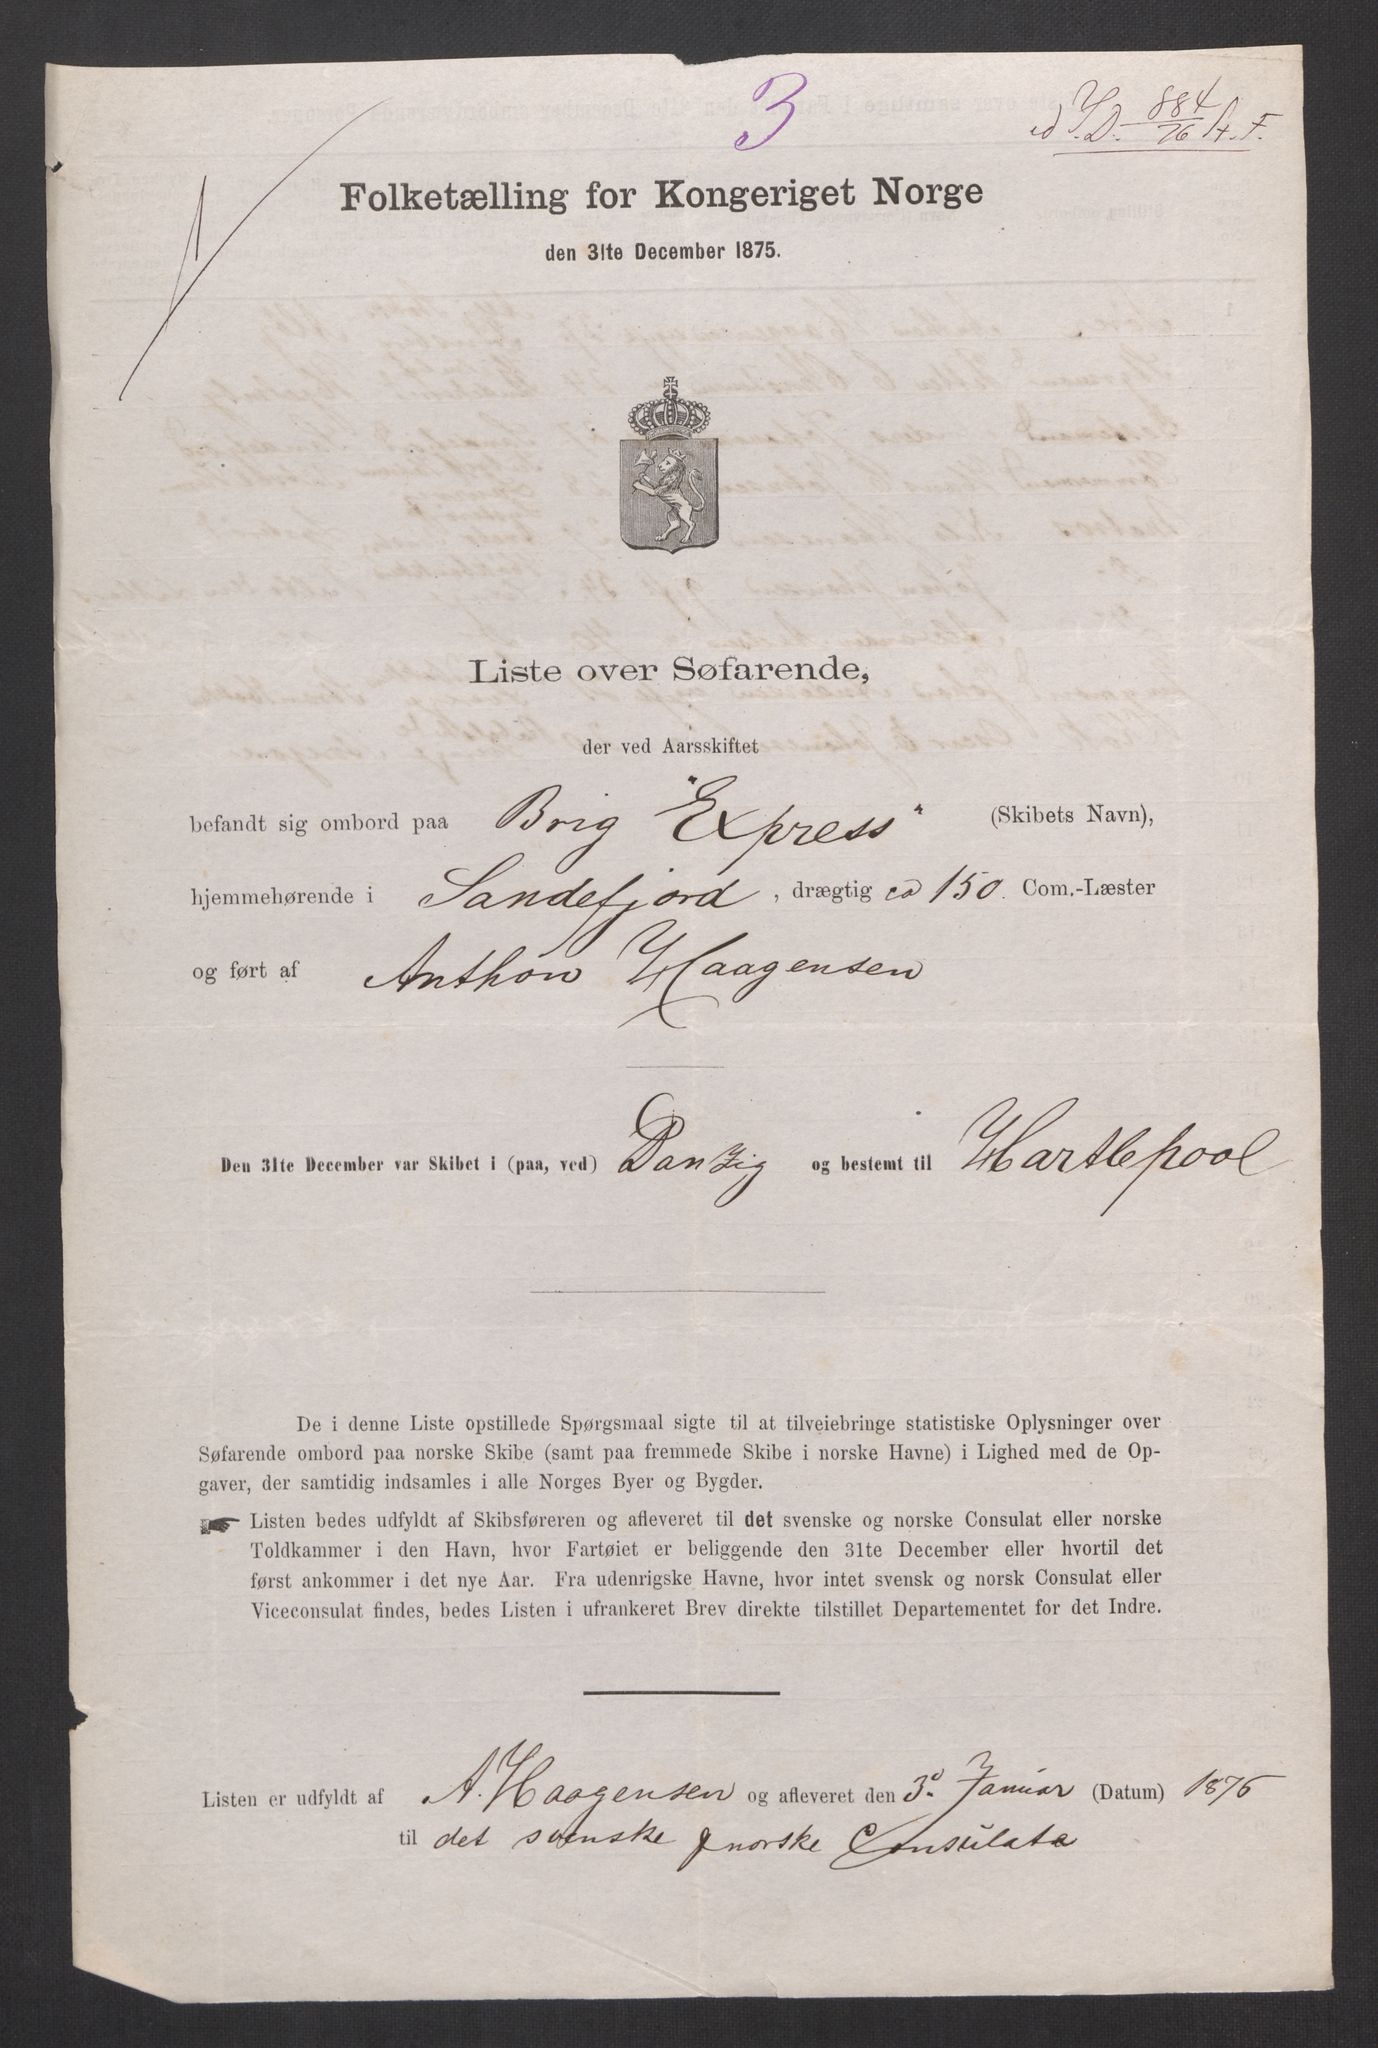 3
I.D. 884/76 A. F.
Folketælling for Kongeriget Norge
den 31te December 1875.
Liste over Søfarende,
der ved Aarsskiftet
befandt sig ombord paa Brig "Express" (Skibets Navn),
hjemmehørende i Sandefjord, drægtig ca 150 Com.-Læster
og ført af Anthon Haagensen
Den 31te December var Skibet i (paa, ved) Danzig og bestemt til Hartlepool
De i denne Liste opstillede Spørgsmaal sigte til at tilveiebringe statistiske Oplysninger over
Søfarende ombord paa norske Skibe (samt paa fremmede Skibe i norske Havne) i Lighed med de Op-
gaver, der samtidig indsamles i alle Norges Byer og Bygder.
Listen bedes udfyldt af Skibsføreren og afleveret til det svenske og norske Consulat eller norske
Toldkammer i den Havn, hvor Fartøiet er beliggende den 31te December eller hvortil det
først ankommer i det nye Aar. Fra udenrigske Havne, hvor intet svensk og norsk Consulat eller
Viceconsulat findes, bedes Listen i ufrankeret Brev direkte tilstillet Departementet for det Indre.
Listen er udfyldt af A. Haagensen og afleveret den 3. Januar (Datum) 1876
til det svenske & norske Consulate